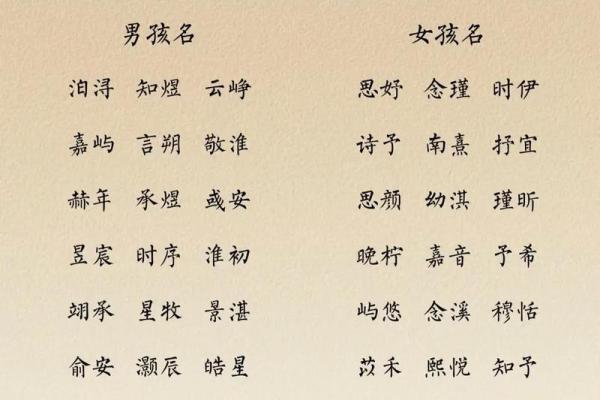 男孩名 女孩名
泊浔 知煜 云峥 思妤 念瑾 时伊
嘉屿 言朔 敬淮 诗予 南熹 抒宜
赫年 承煜 彧安 思颜 幼淇 瑾昕
昱宸 时序 淮初 晚柠 嘉音 予希
翊承 星牧 景湛 屿悠 念溪 穆恬
俞安 灏辰 皓星 苡禾 熙悦 知予